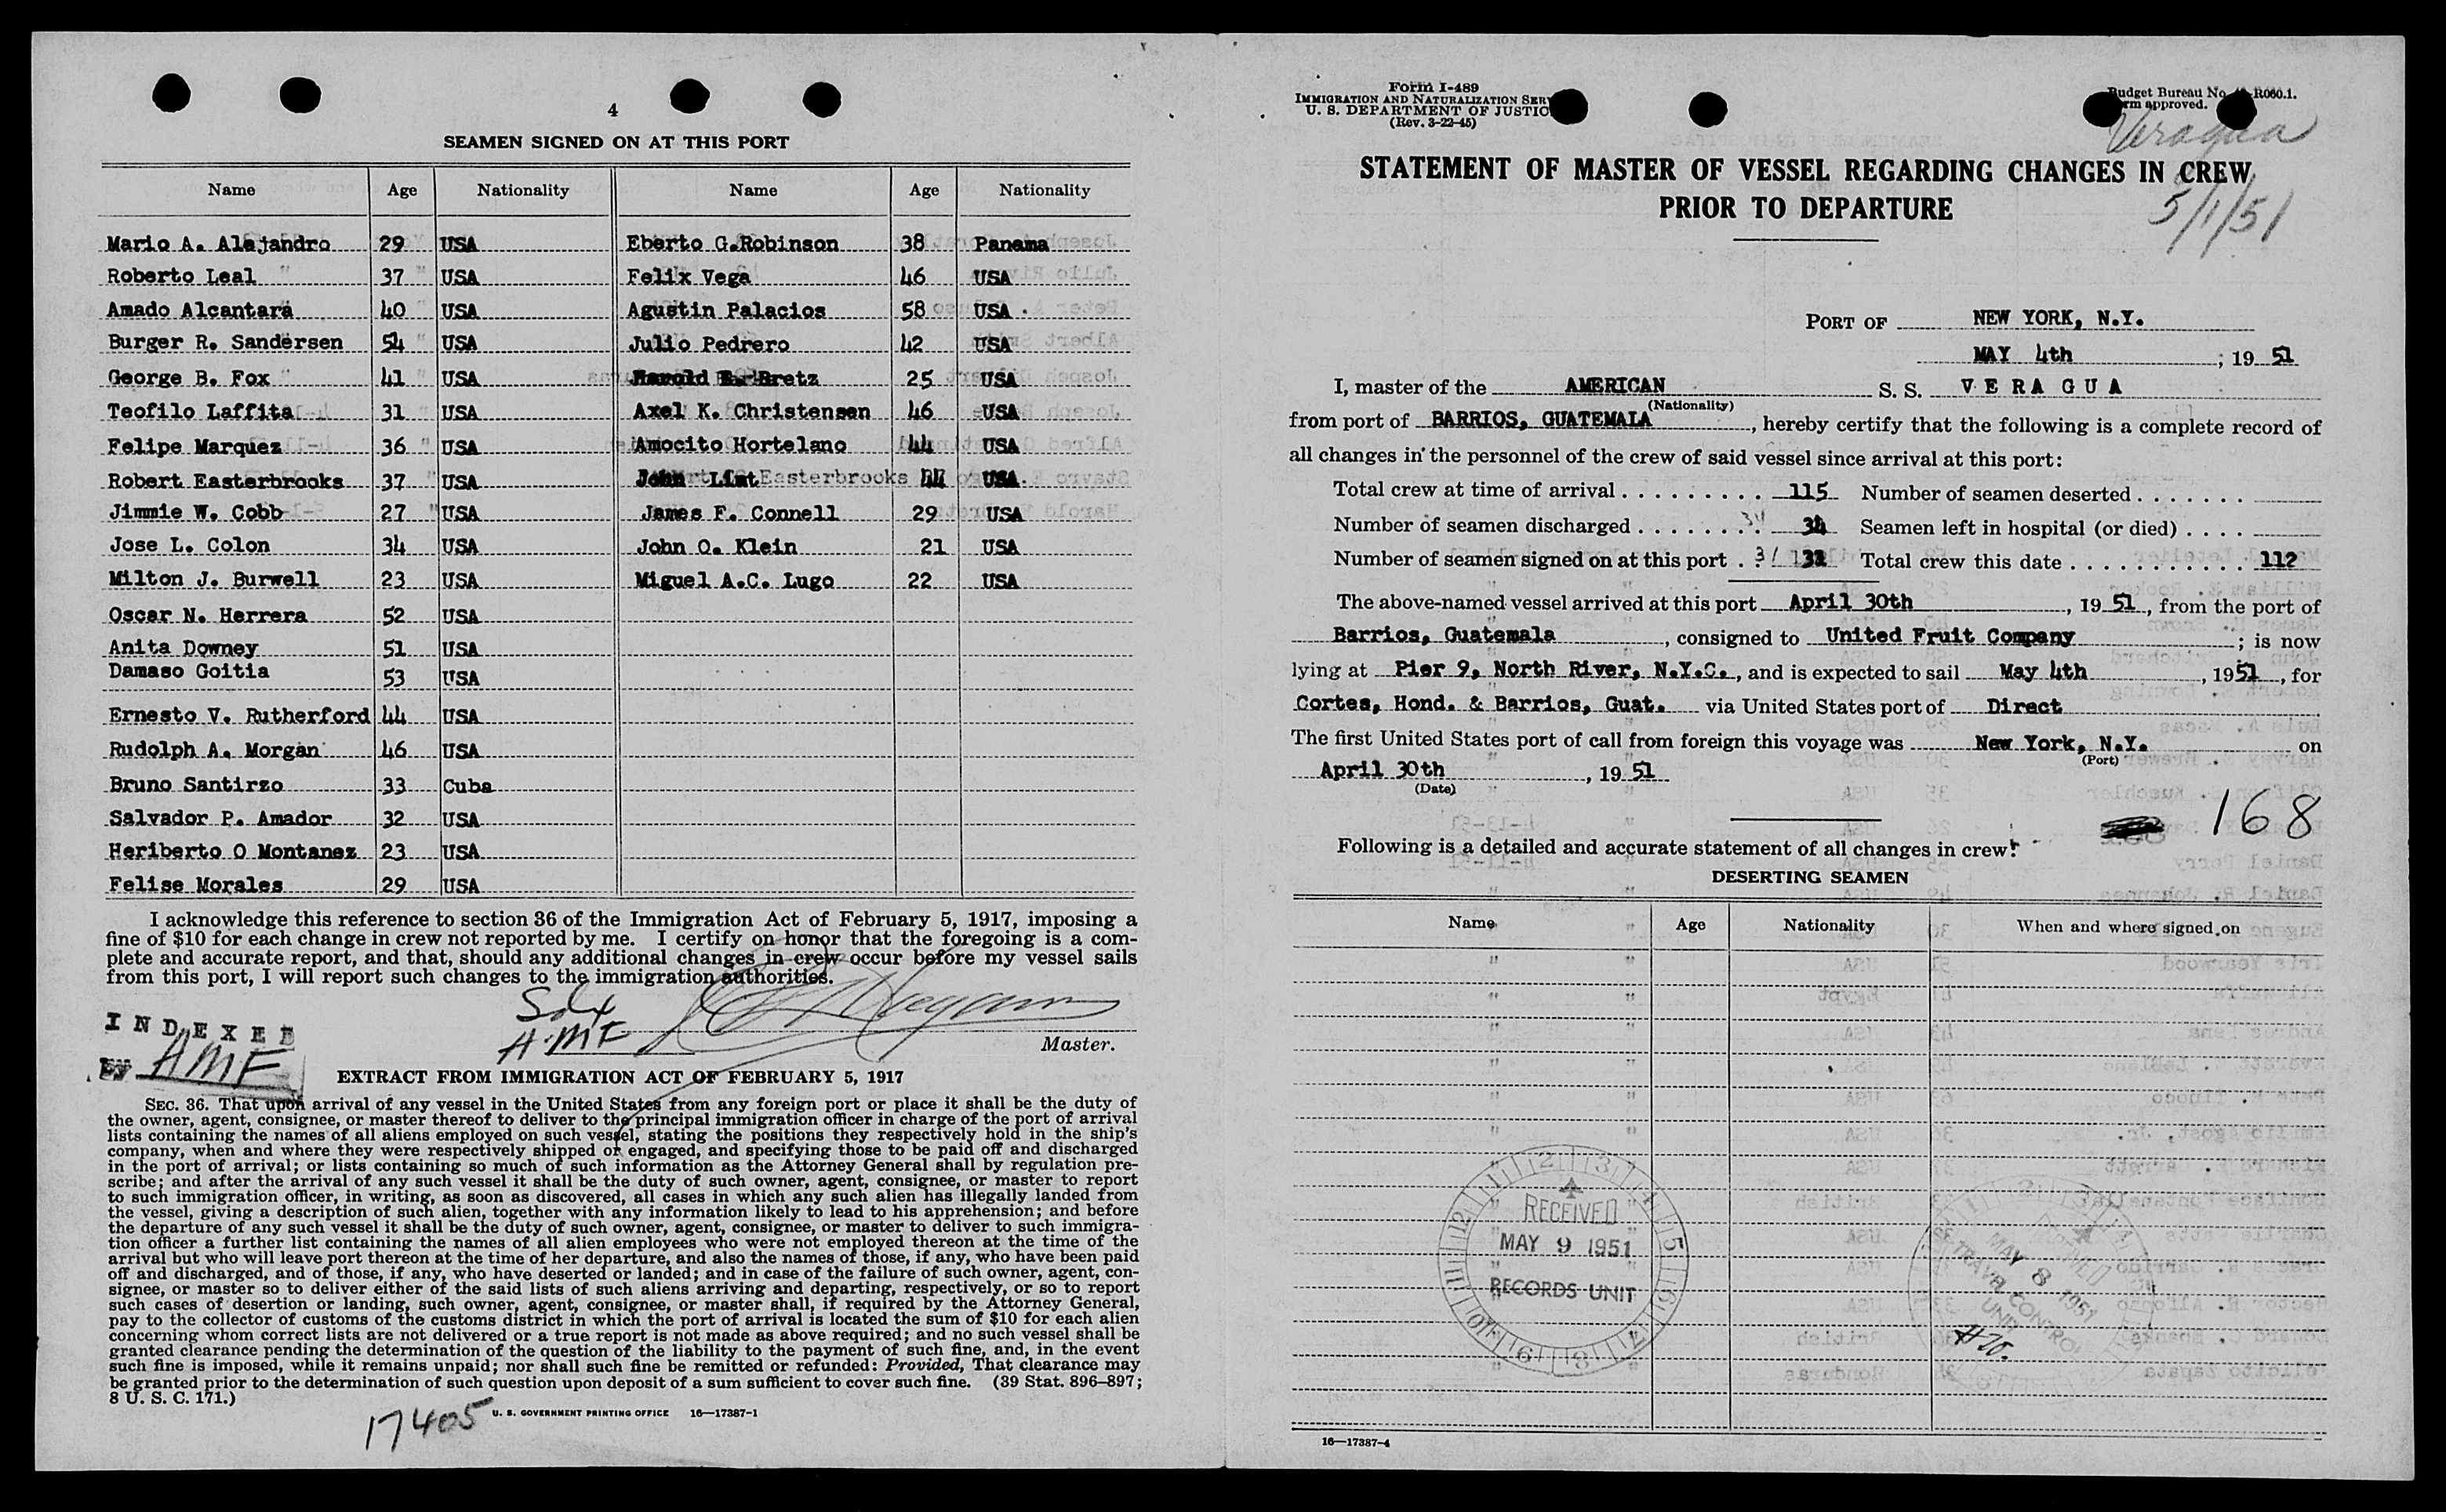 4
SEAMEN SIGNED ON AT THIS PORT
Name Age Nationality Name Age Nationality
Mario A. Alejandro 29 USA Eberto G.Robinson 38 Panama
Roberto Leal 37 USA Felix Vega 46 USA
Amado Alcantara 40 USA Agustin Palacios 58 USA
Burger R. Sandersen 54 USA Julio Pedrero 42 USA
George B. Fox 41 USA Harold E. Bretz 25 USA
Teofilo Laffita 31 USA Axel K. Christensen 46 USA
Felipe Marquez 36 USA Amocito Hortelano 44 USA
Robert Easterbrooks 37 USA John Lint 44 USA
Jimmie W. Cobb 27 USA James F. Connell 29 USA
Jose L. Colon 34 USA John O. Klein 21 USA
Milton J. Burwell 23 USA Miguel A.C. Lugo 22 USA
Oscar N. Herrera 52 USA
Anita Downey 51 USA
Damaso Goitia 53 USA
Ernesto V. Rutherford 44 USA
Rudolph A. Morgan 46 USA
Bruno Santirzo 33 Cuba
Salvador P. Amador 32 USA
Heriberto O Montanez 23 USA
Felise Morales 29 USA
I acknowledge this reference to section 36 of the Immigration Act of February 5, 1917, imposing a
fine of $10 for each change in crew not reported by me. I certify on honor that the foregoing is a com-
plete and accurate report, and that, should any additional changes in crew occur before my vessel sails
from this port, I will report such changes to the immigration authorities.
INDEXED
BY AMF
AMF
Master.
EXTRACT FROM IMMIGRATION ACT OF FEBRUARY 5, 1917
SEC. 36. That upon arrival of any vessel in the United States from any foreign port or place it shall be the duty of
the owner, agent, consignee, or master thereof to deliver to the principal immigration officer in charge of the port of arrival
lists containing the names of all aliens employed on such vessel, stating the positions they respectively hold in the ship's
company, when and where they were respectively shipped or engaged, and specifying those to be paid off and discharged
in the port of arrival; or lists containing so much of such information as the Attorney General shall by regulation pre-
scribe; and after the arrival of any such vessel it shall be the duty of such owner, agent, consignee, or master to report
to such immigration officer, in writing, as soon as discovered, all cases in which any such alien has illegally landed from
the vessel, giving a description of such alien, together with any information likely to lead to his apprehension; and before
the departure of any such vessel it shall be the duty of such owner, agent, consignee, or master to deliver to such immigra-
tion officer a further list containing the names of all alien employees who were not employed thereon at the time of the
arrival but who will leave port thereon at the time of her departure, and also the names of those, if any, who have been paid
off and discharged, and of those, if any, who have deserted or landed; and in case of the failure of such owner, agent, con-
signee, or master so to deliver either of the said lists of such aliens arriving and departing, respectively, or so to report
such cases of desertion or landing, such owner, agent, consignee, or master shall, if required by the Attorney General,
pay to the collector of customs of the customs district in which the port of arrival is located the sum of $10 for each alien
concerning whom correct lists are not delivered or a true report is not made as above required; and no such vessel shall be
granted clearance pending the determination of the question of the liability to the payment of such fine, and, in the event
such fine is imposed, while it remains unpaid; nor shall such fine be remitted or refunded: Provided, That clearance may
be granted prior to the determination of such question upon deposit of a sum sufficient to cover such fine. (39 Stat. 896–897;
8 U. S. C. 171.)
17405
U. S. GOVERNMENT PRINTING OFFICE 16—17387-1
Form I-489
IMMIGRATION AND NATURALIZATION SER
U. S. DEPARTMENT OF JUSTIC
(Rev. 3-22-45)
Budget Bureau No. R060.1.
rm approved.
Veragua
STATEMENT OF MASTER OF VESSEL REGARDING CHANGES IN CREW
PRIOR TO DEPARTURE
5/1/51
PORT OF NEW YORK, N.Y.
MAY 4th ; 19 51
I, master of the AMERICAN S. S. VERAGUA
(Nationality)
from port of BARRIOS, GUATEMALA, hereby certify that the following is a complete record of
all changes in the personnel of the crew of said vessel since arrival at this port:
Total crew at time of arrival . . . . . . . . . 115 Number of seamen deserted . . . . . . .
Number of seamen discharged . . . . . . . 34 34 Seamen left in hospital (or died) . . . .
Number of seamen signed on at this port . 31 Total crew this date . . . . . . . . . . . 112
The above-named vessel arrived at this port April 30th, 19 51, from the port of
Barrios, Guatemala, consigned to United Fruit Company; is now
lying at Pier 9, North River, N.Y.C., and is expected to sail May 4th, 1951, for
Cortes, Hond. & Barrios, Guat. via United States port of Direct
The first United States port of call from foreign this voyage was New York, N.Y. on
(Port)
April 30th, 19 51
(Date)
168
Following is a detailed and accurate statement of all changes in crew:
DESERTING SEAMEN
Name Age Nationality When and where signed on
RECEIVED
MAY 9 1951
RECORDS UNIT
RECEIVED
MAY 8 1951
TRAVEL CONTROL
UNIT
16—17387-4